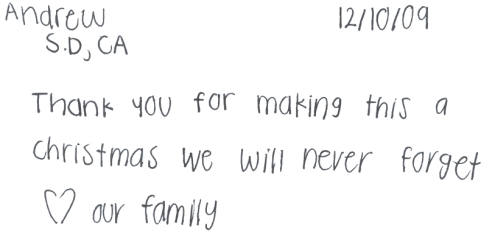 Andrew 12/10/09
S.D, CA
Thank you for making this a
christmas we will never forget
♡ our family